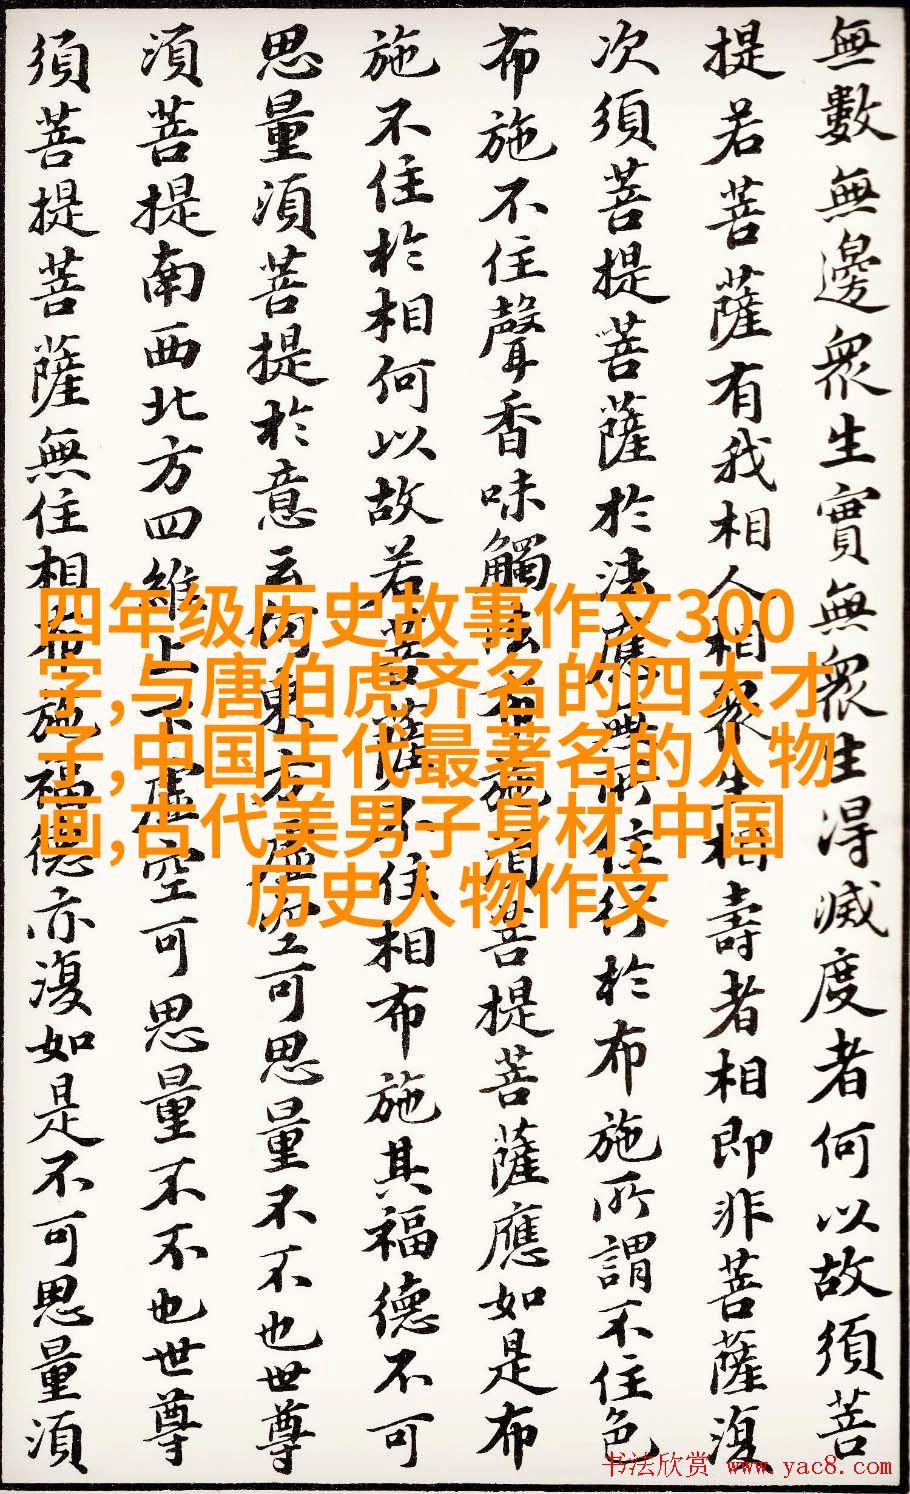 無數無邊衆生實無衆生得滅度者何以故須菩
提若菩薩有我相人相衆生相壽者相即非菩薩復
次須菩提菩薩於法應無所住行於布施所謂不住色
布施不住聲香味觸法布施須菩提菩薩應如是布
施不住於相何以故若菩薩不住相布施其福德不可
思量須菩提於意云何東方虛空可思量不不也世尊
須菩提南西北方四維上下虛空可思量不不也世尊
須菩提菩薩無住相布施福德亦復如是不可思量須
四年级历史故事作文300
字,与唐伯虎齐名的四大才
子,中国古代最著名的人物
画,古代美男子身材,中国
历史人物作文
书法欣赏 www.yac8.com